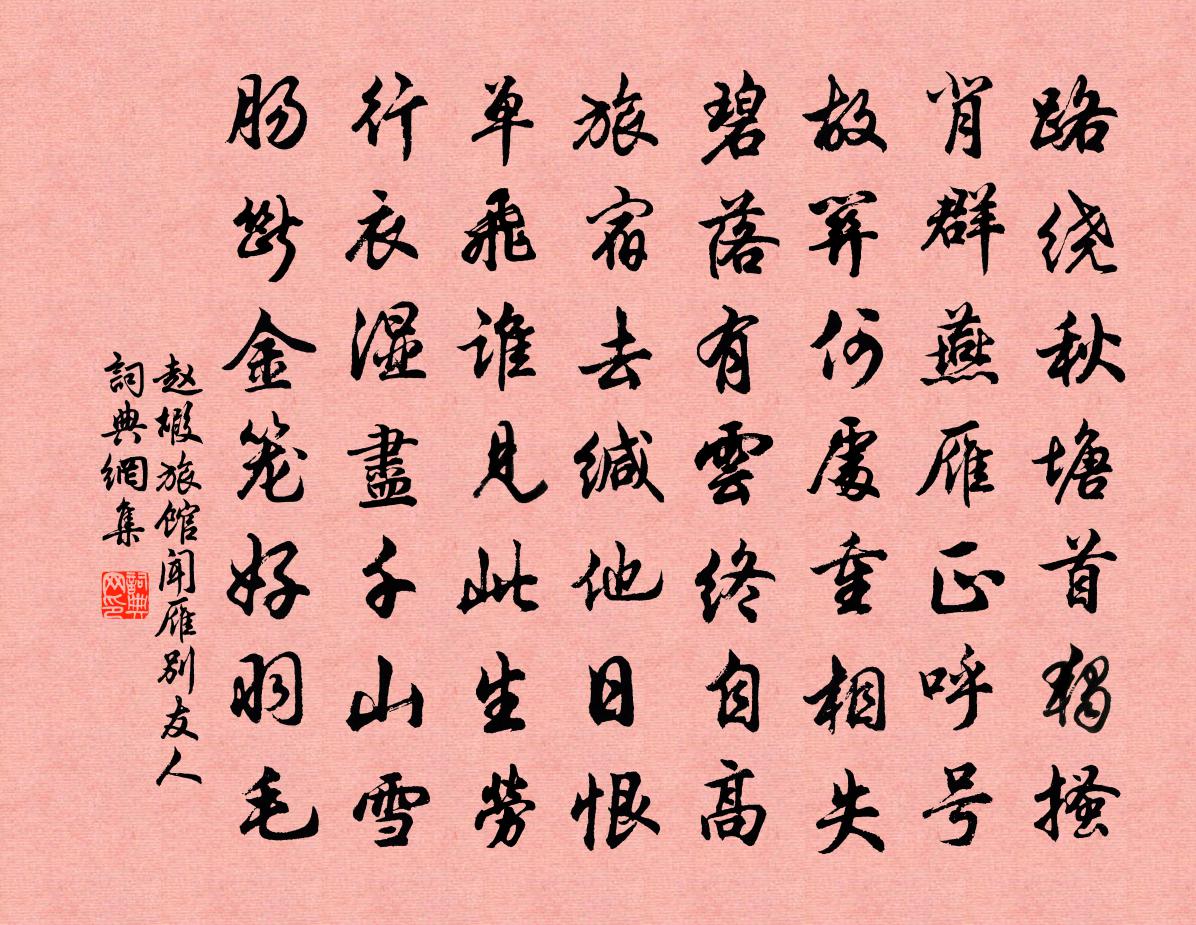 路绕秋塘首獨搔
肖群燕雁正呼号
故關何處重相失
碧落有雲终自高
旅宿去缄他日恨
单飛谁见此生勞
行衣湿盡千山雪
肠斷金笼好羽毛
赵嘏旅馆闻雁别友人
詞典網集
詞典网印